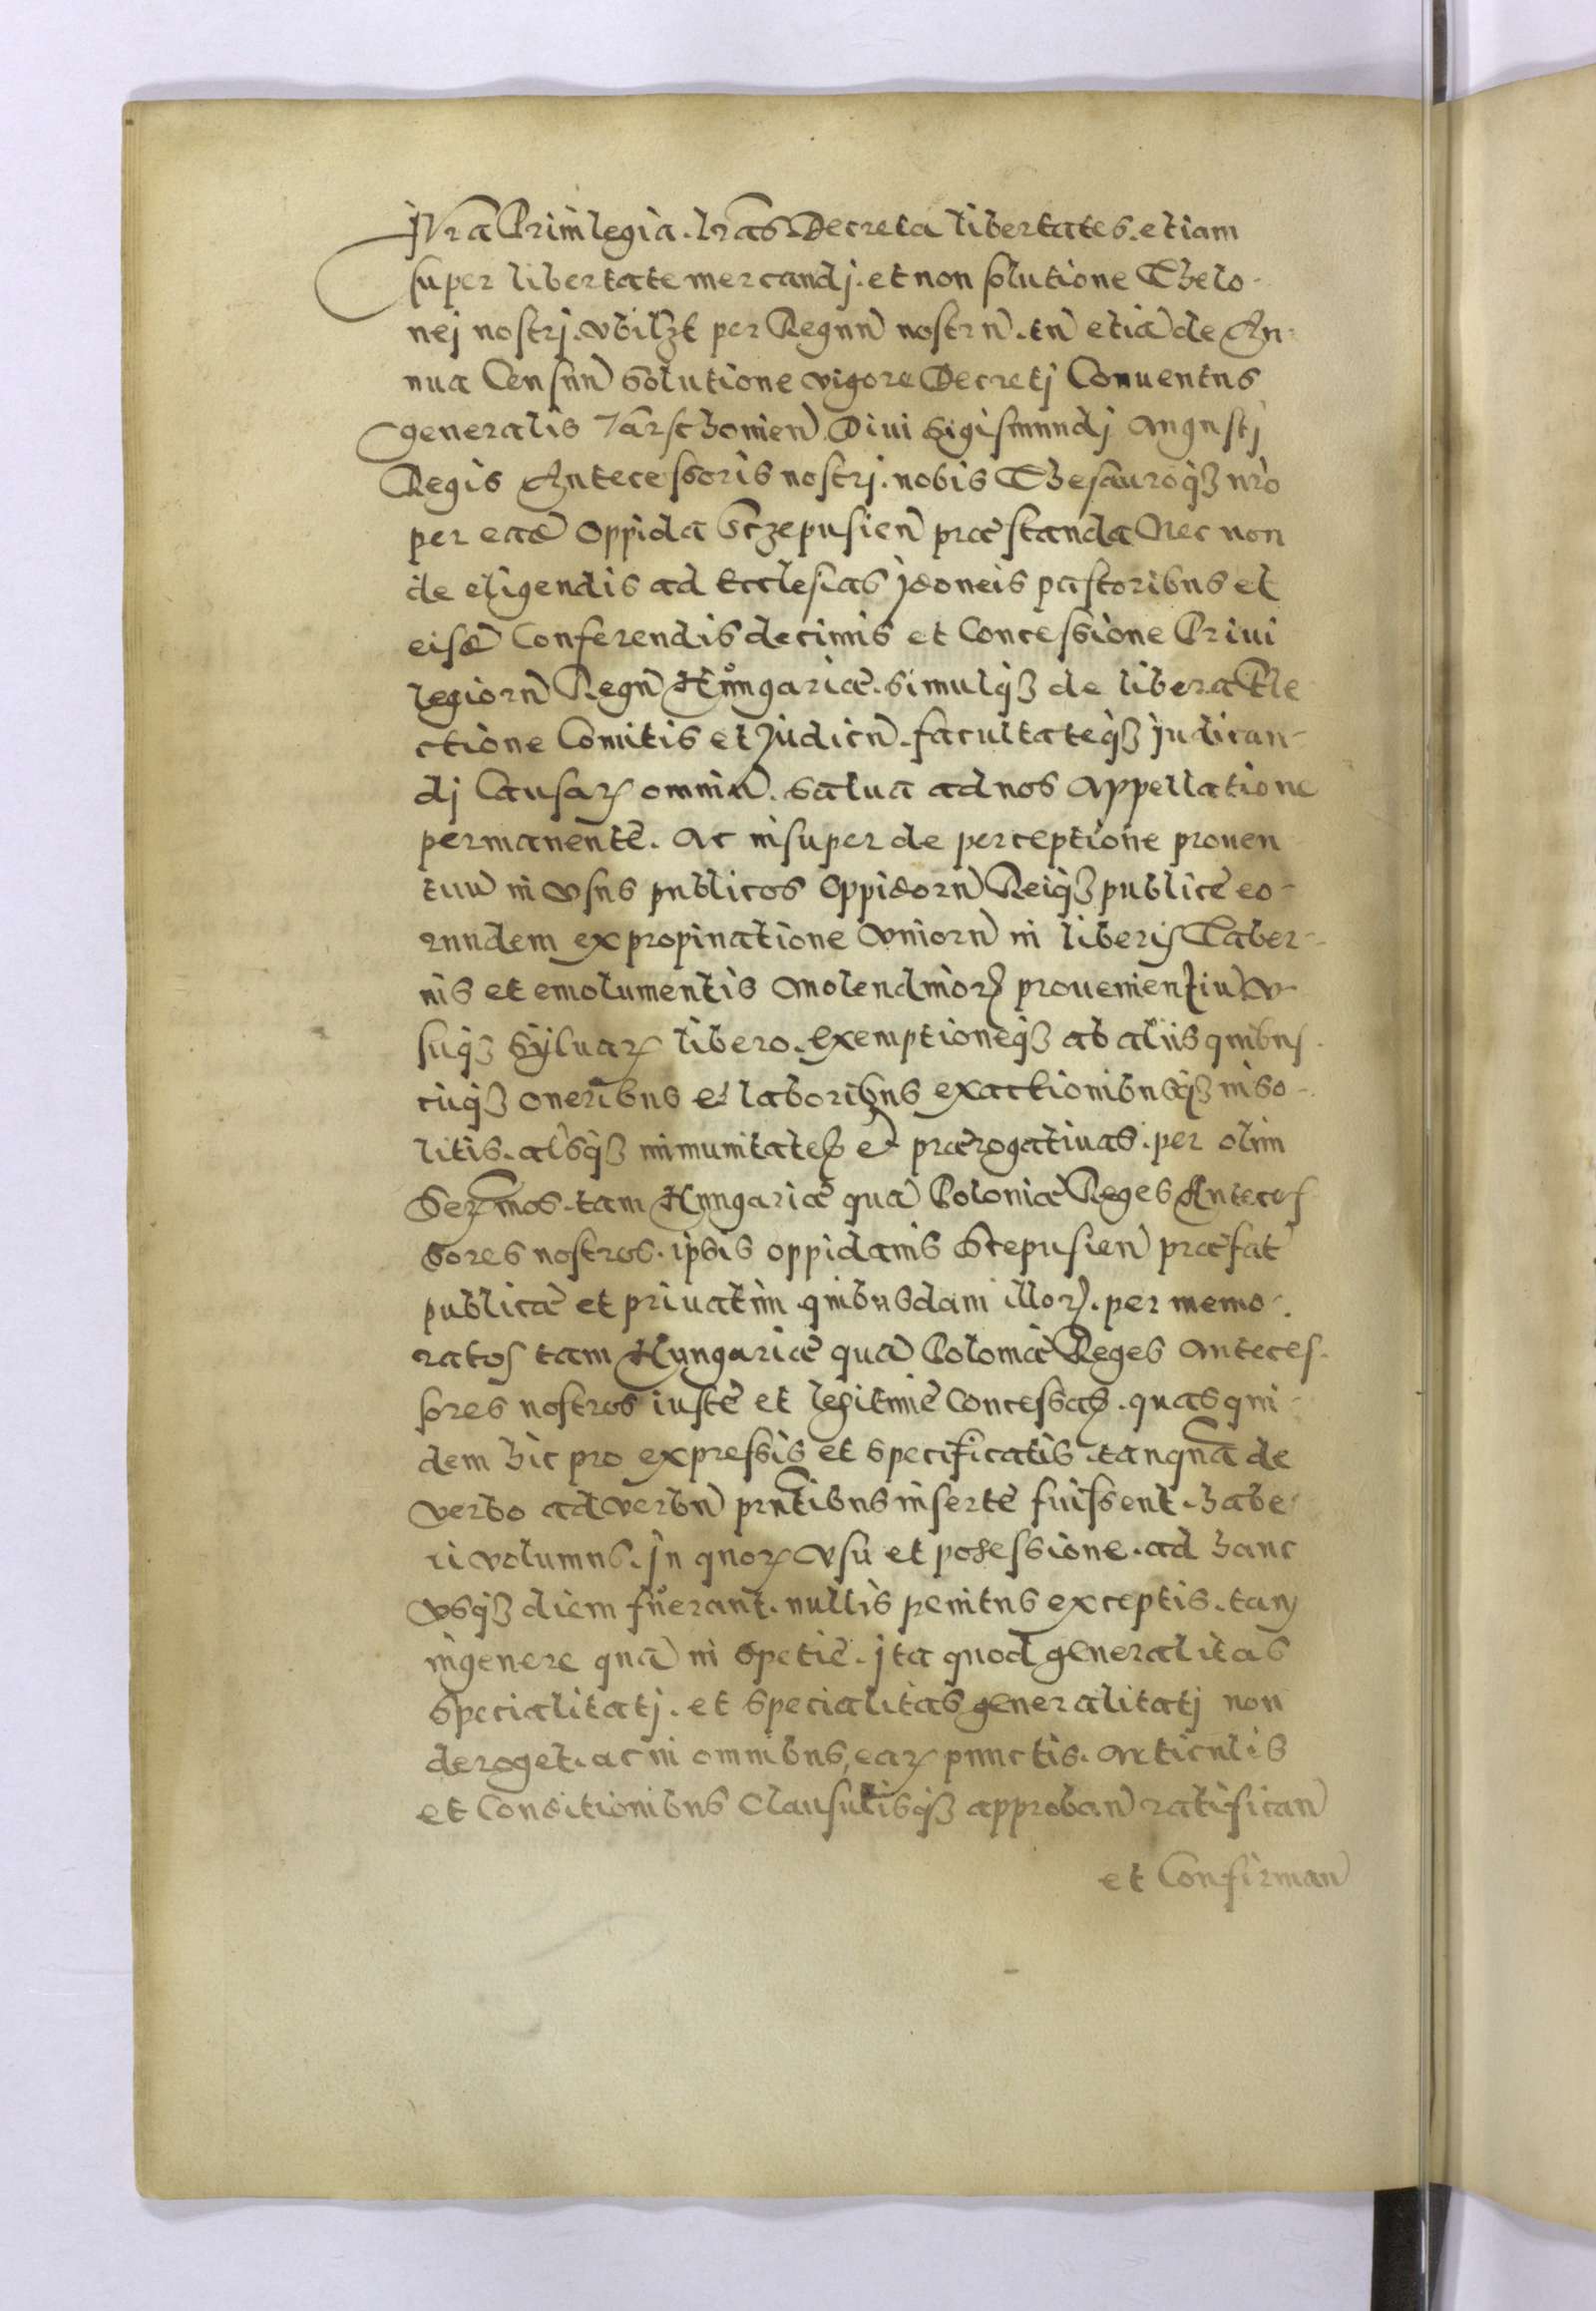 Jura Priuilegia. lr̃as Decreta libertates. etiam
super libertate mercandj. et non solutione Thelo-
nej nostrj. vbilʒt per Regnũ nostrũ. tñ etiã de An-
nua Censuũ Solutione vigore Decretj Conuentus
generalis Varschouieñ Diui Sigismundj Augustj
Regis Antecessoris nostrj. nobis Thesauroqʒ nr̃o
per eadẽ Oppida Sczepusieñ præstanda Nec non
de eligendis ad Ecclesias jdoneis pastoribus et
eisdẽ Conferendis decimis et Concessione Priui
legiorũ Regñ Hungariæ. simulqʒ de libera Ele
ctione Comitis et Judicũ. facultateqʒ judican-
dj Causaꝝ omniũ. salua ad nos Appellatione
permanente. Ac insuper de perceptione prouen
tuũ in vsus publicos Oppidorũ Reiqʒ publicè eo-
rundem ex propinatione viniorũ in liberis Taber-
nis et emolumentis Molendinoꝝ prouenientiũ v-
suqʒ Syluaꝝ libero. Exemptioneqʒ ab aliis quibus
cũqʒ oneribus et laboribus exactionibusqʒ inso-
litis. alsqʒ immunitates et prærogatiuas. per olim
Serꝫmos. tam Hungariæ quã Poloniæ Reges Anteces
sores nostros. ipsis oppidanis Scepusieñ præfat̃
publicæ et priuatim quibusdam illoꝝ. per memo-
ratos tam Hungariæ quã Poloniæ Reges Anteces-
sores nostros iustè et legitimè Concessas. quas qui-
dem hic pro expressis et specificatis. tanquã de
verbo ad verbũ pñtibus insertè fuissent. habe-
ri volumus. Jn quoꝝ vsu et possessione. ad hanc
vsqʒ diem fuerant. nullis penitus exceptis. tam
in genere quã in specie. jta quod generalitas
specialitatj. et specialitas generalitatj non
deroget. ac in omnibus, eaꝝ punctis. Articulis
et Conditionibus Clausulisqʒ approbañ ratificañ
et Confirmañ